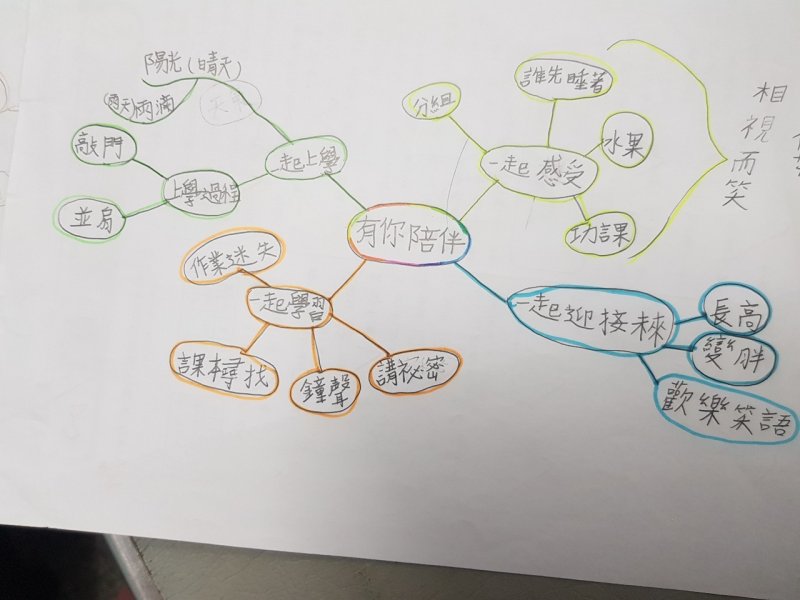 有你陪伴
一起上學
陽光(晴天)
(雨天)雨滴
上學過程
敲門
並肩
一起感受
分組
誰先睡著
水果
功課
相視而笑
一起學習
作業迷失
課本尋找
鐘聲
講祕密
一起迎接未來
長高
變胖
歡樂笑語